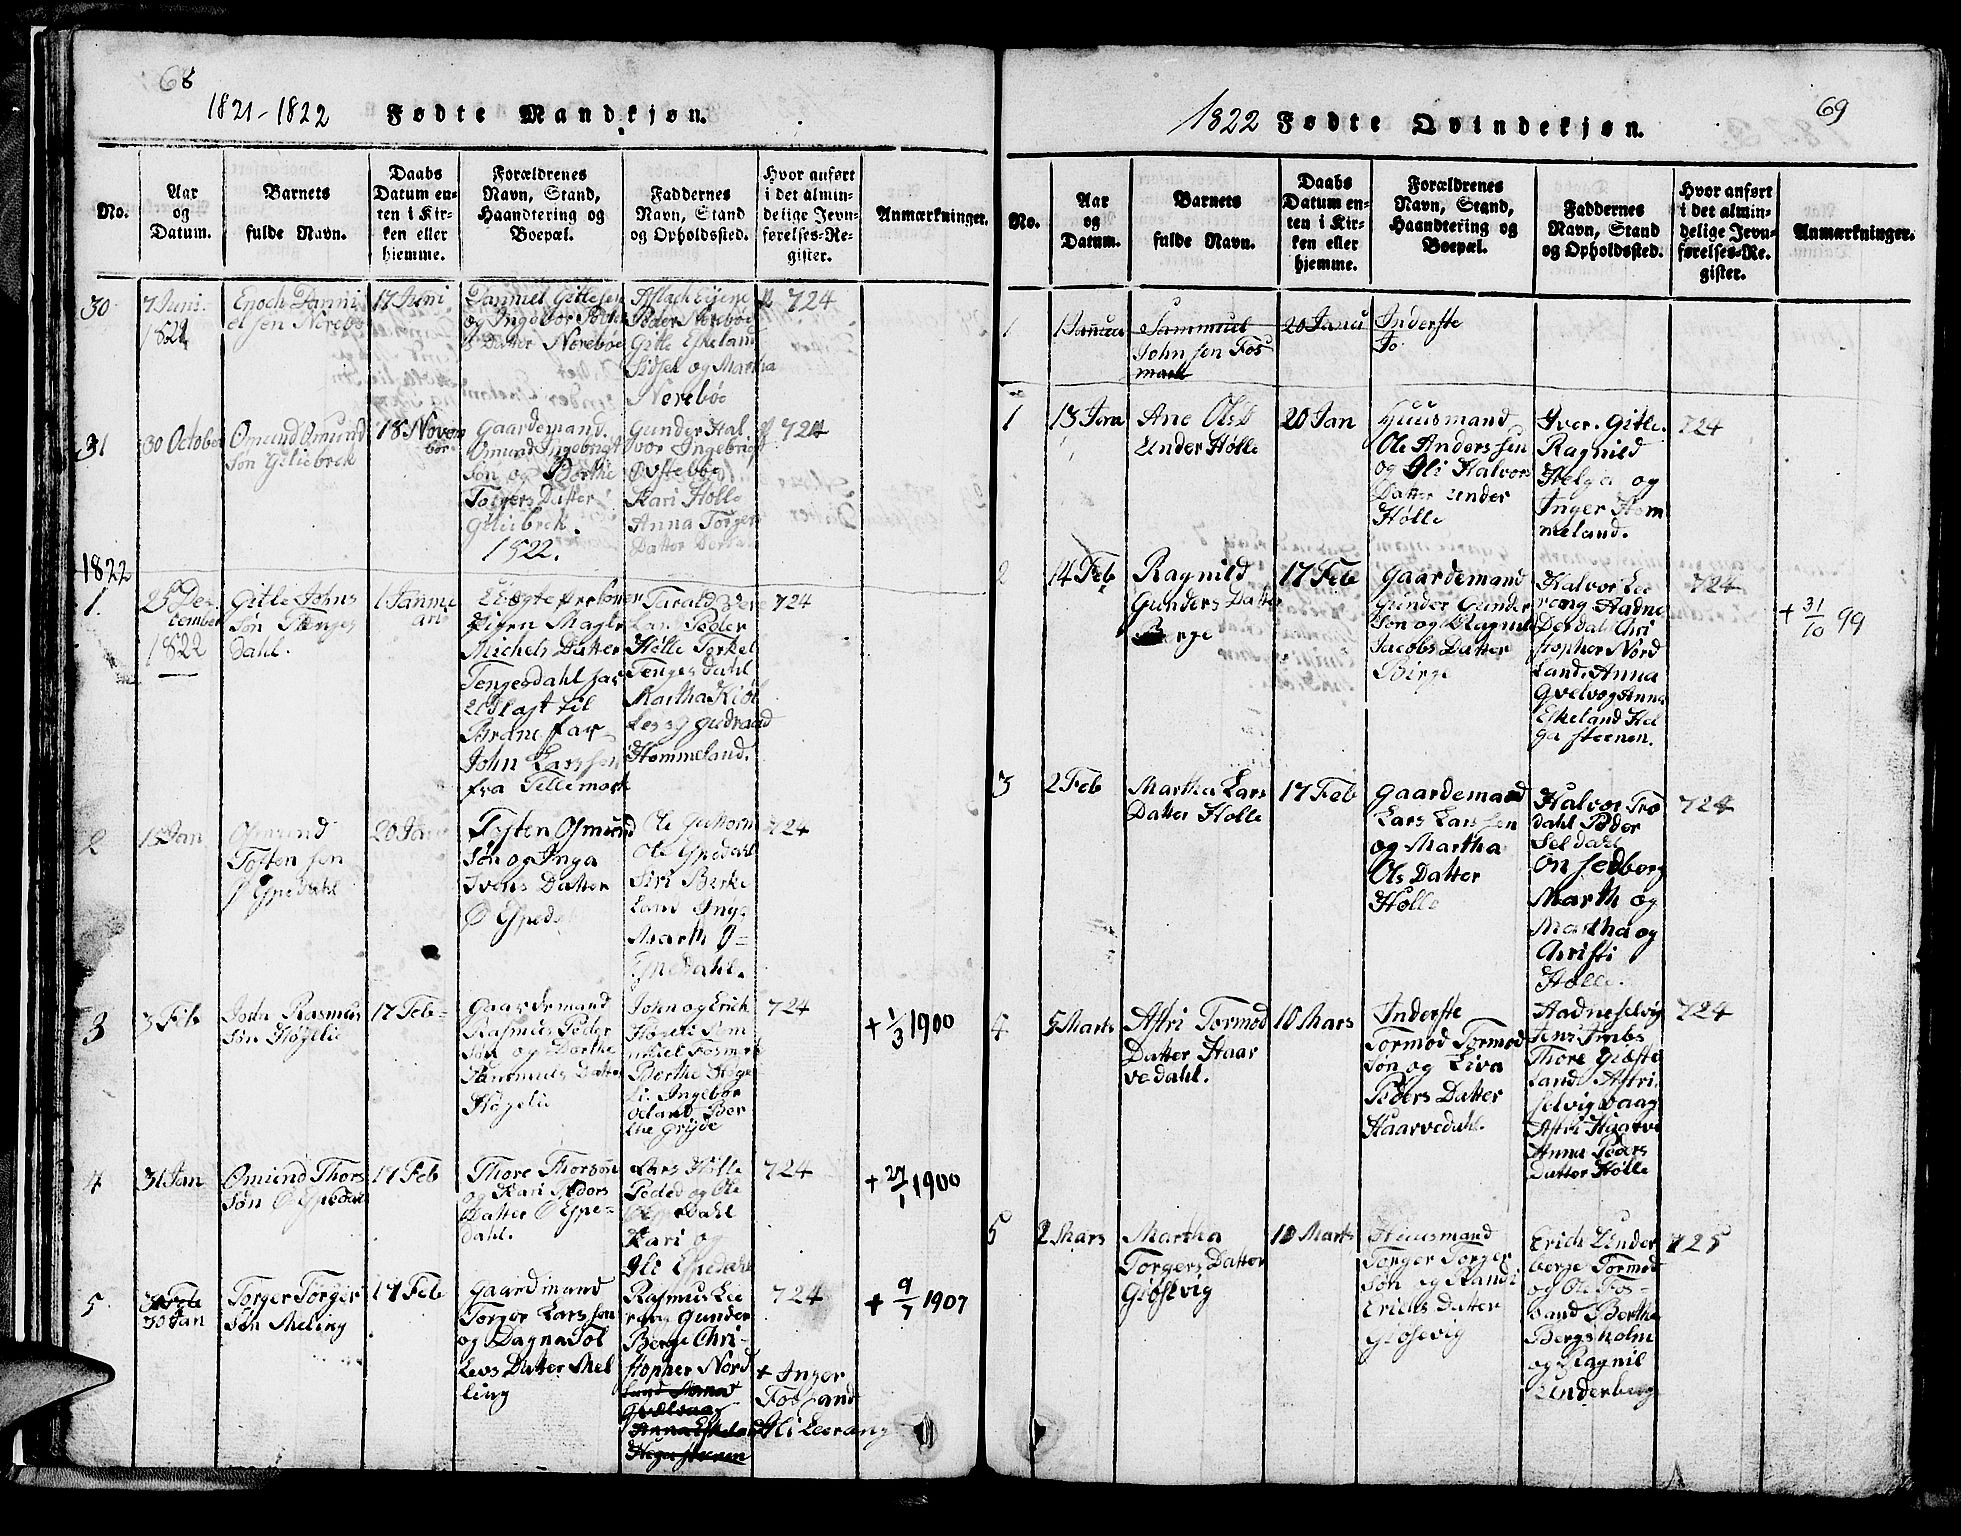 68
1821-1822 Fødte Mandkjøn.
No.
Aar
og
Datum.
Barnets
fulde Navn.
Daabs
Datum en-
ten i Kir-
ken eller
hjemme.
Forældrenes
Navn, Stand,
Haandtering og
Boepæl.
Faddernes
Navn, Stand
og Opholdssted.
Hvor anført
i det almin-
delige Jevn-
førelses-Re-
gister.
Anmærkninger.
30
7 Juni
1821
Enoch Danni
el sen Norebø
17 Juni
Danniel Gitlesen
og Ingebor Peders
Datter Norebøe
Peder Norebøe
Gitle Eskeland
Sidsel og Martha
Norebøe
724
31
30 October
Omund Omund
søn Giliebrek
18 Novem
ber
Gaardemand
Omund Ingebrigt
søn og Børthe
Torgers Datter
Giliebrek.
1822.
Gunder Hal
vor Ingebrigt
Øvstebøe
Kari Holle
Anna Torgers
Datter
724
1822
1.
25 De
cember
1822
Gitle Johns
søn Tenges
dahl.
1 Januu
ari
Uægte
Pigen
Michels Datter
Tengesdahl
Udlagt til
Barnefar
John Larssen
fra Tellemark
Tarald
Lars Peder
Hølle Torkel
Tengesdahl
Martha
Gudraad
Hommeland.
724
2
15 Jan
Osmund
Tosten sen
Espedahl
20 Jan
Tosten Osmund
søn og Inga
Ivers Datter
Ole Guttorm
Ole Espedahl
Siri Berke
land Inga
Marth
724
3
3 Feb
John Rasmus
søn Høgelie
17 Feb
Gaardemand
Rasmus Peder
søn og Dorthe
Datter
Høgelie
John og Erich
Høgeli Sam
muel Fosmark
Berthe Høge
li Ingebor
Øeland Ber
the Grøde
724
+ 1/3 1900
4
31 Jan
Omund Thors
søn Espedal
17 Feb
Thore Thorsøn
og Kari Peders
Datter Espe-
dahl.
Lars Hølle
Peder og Ole
Espedahl
Kari og
Gli Espedahl
724
+ 27/1 1900
5
30 Jan
Torger Torger
søn Meling
17 Feb
Gaardmand
Torger Larssøn
og Dagna Tol
levs Datter Mel
ling
Rasmus Lee
rang Gunder
Berge Chri-
stopher Nord
land Anna
Anna Eskeland
Helga Steenen
724
+ Inger
Fossand
Gli Leerang
+ 9/7 1907
69
1822 Fødte Qvindekjøn.
No.
Aar
og
Datum.
Barnets
fulde Navn.
Daabs
Datum en-
ten i Kir-
ken eller
hjemme.
Forældrenes
Navn, Stand,
Haandtering og
Boepæl.
Faddernes
Navn, Stand
og Opholdssted.
Hvor anført
i det almin-
delige Jevn-
førelses-Re-
gister.
Anmærkninger.
1
Sammuel
Johnsen Fos
mark
20 Janu
Inderste
Jo
1
13 Jan
Ane Ols D
Under Hølle
20 Jan
Huusmand
Ole Anderssen
og Gli Halvors
Datter Under
Hølle
Iver. Gitle.
Ragnild
Helga og
Inger Hom
meland.
724
2
14 Feb
Ragnild
Gunders Datter
Berge
17 Feb
Gaardemand
Gunder Gunder
søn og Ragnild
Jacobs Datter
Birge
Halvor Lee
rang Aadne
Derdal Chri
stopher Nord
land Anna
og Anna
Eskeland Hel
ga steenen.
724
+ 31/10 99
3
2 Feb
Martha Lars
Datter Holle
17 Feb
Gaardemand
Lars Larssen
og Martha
Ols Datter
Holle
Halvor Træ
dahl Peder
Seldahl
Marth og
Martha og
Christi
Hølle.
724
4
5 Marts
Astri Tormod
Datter Haar
vedahl.
10 Mars
Inderste
Tormod Tormod
søn og Liva
Peders Datter
Haarvedahl.
Aadne selvig
Thore Giøste
land Astri
selvigvaag
Astri Haarve
Anna Peders
Datter Hølle
724
5
2 Mars
Martha
Torgers Datter
Giøsevig
10 Marts
Huusmand
Torger Torger
søn og Randi
Erichs Datter
Giøsevig
Erich Under
berge Tormod
og Ole Fos-
sand Berthe
Bergsholm
og Ragnil
Underberg
725